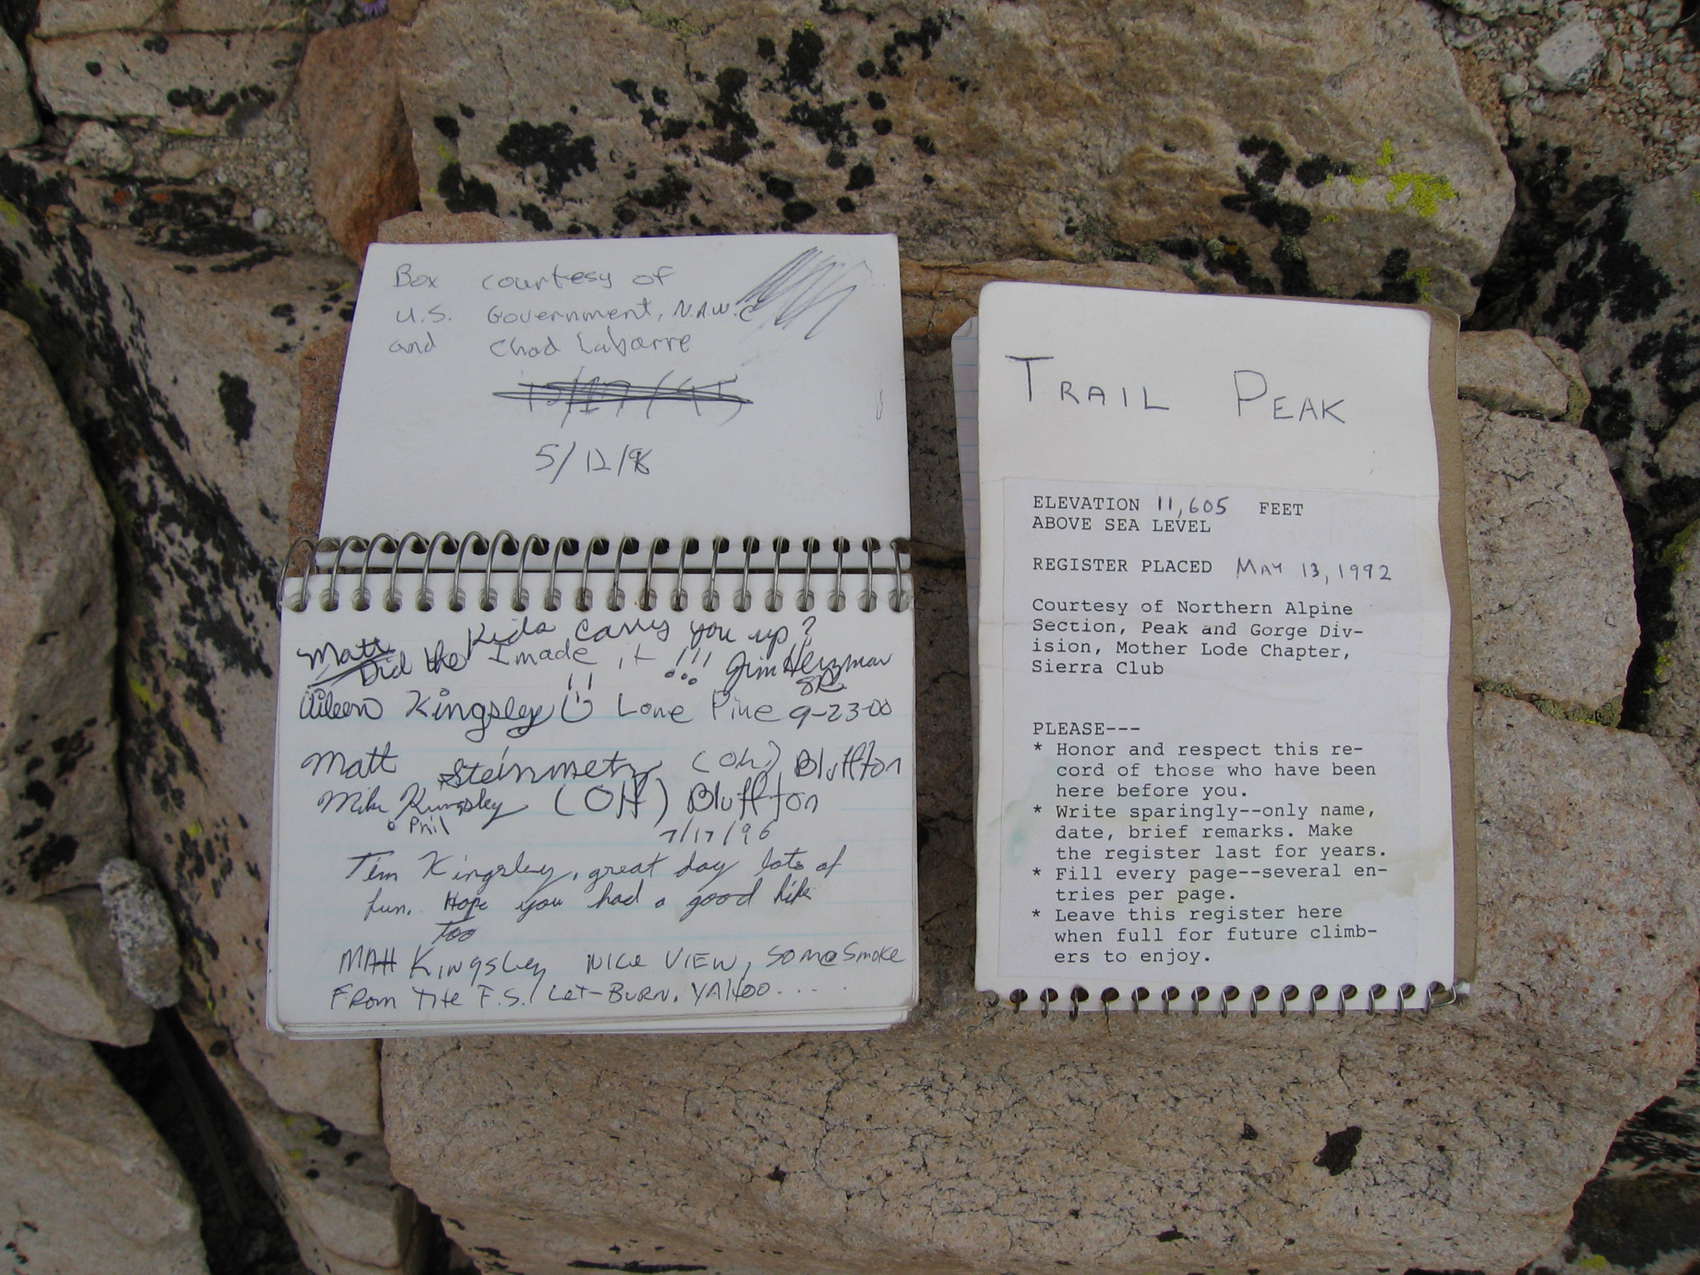 Box courtesy of
U.S. Government, N.A.W.C
and Chad Labarre
5/12/96
Matt
Did the Kids carry you up?
I made it!!!
Aileen Kingsley Lone Pine 9-23-00
Matt Steinmetz (Oh) Bluffton
Mike Kingsley (OH) Bluffton
Phil
7/17/96
Tim Kingsley, great day lots of
fun. Hope you had a good hike
Too
MATT KINGSLEY NICE VIEW, SOME SMOKE
FROM THE F.S. LET-BURN. YAHOO....
TRAIL PEAK
ELEVATION 11,605 FEET
ABOVE SEA LEVEL
REGISTER PLACED MAY 13, 1992
Courtesy of Northern Alpine
Section, Peak and Gorge Div-
ision, Mother Lode Chapter,
Sierra Club
PLEASE---
* Honor and respect this re-
cord of those who have been
here before you.
* Write sparingly--only name,
date, brief remarks. Make
the register last for years.
* Fill every page--several en-
tries per page.
* Leave this register here
when full for future climb-
ers to enjoy.